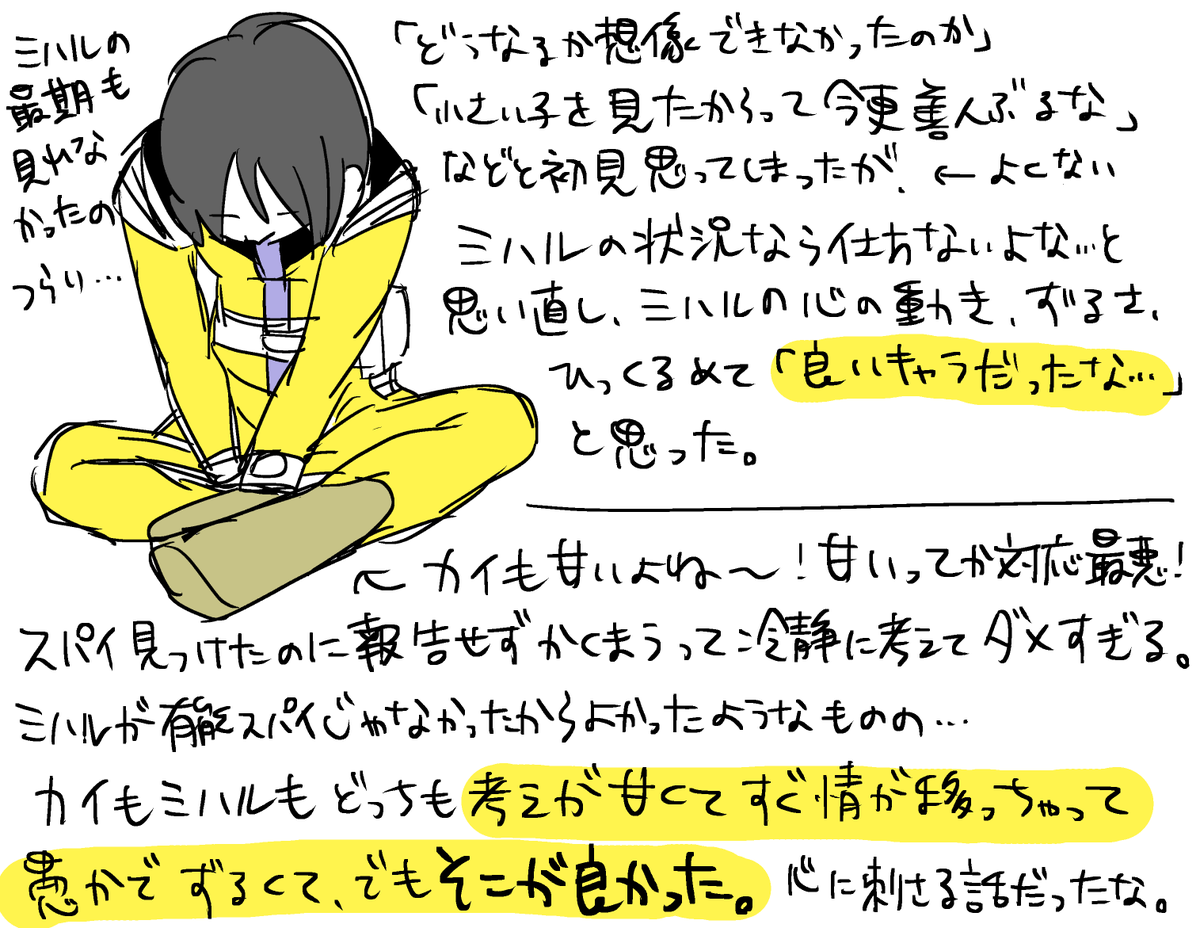 ミハルの
最期も
見れな
かったの
つらい…
「どうなるか想像できなかったのか」
「小さい子を見たからって今更善人ぶるな」
などと初見思ってしまったが、←よくない
ミハルの状況なら仕方ないよな…と
思い直し、ミハルの心の動き、ずるさ、
ひっくるめて「良いキャラだったな…」
と思った。
←カイも甘いよね〜！甘いってか対応最悪！
スパイ見つけたのに報告せずかくまうって冷静に考えてダメすぎる。
ミハルが有能スパイじゃなかったからよかったようなものの…
カイもミハルもどっちも考えが甘くてすぐ情が移っちゃって
愚かでずるくて、でもそこが良かった。心に刺さる話だったな。